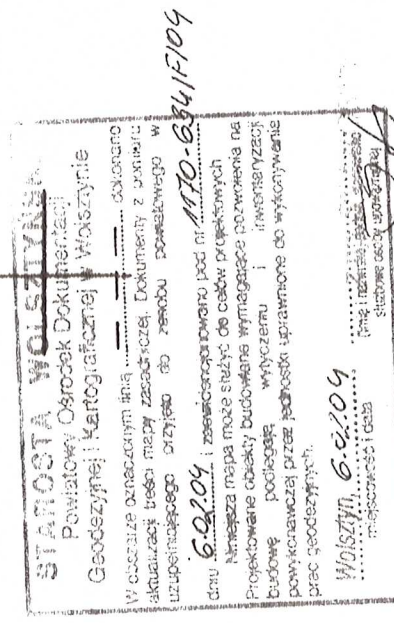 STAROSTA WOLSZTYŃSKI
Powiatowy Ośrodek Dokumentacji
Geodezyjnej i Kartograficznej w Wolsztynie
W obszarze oznaczonym linią ............ dokonano
aktualizacji treści mapy zasadniczej. Dokumenty z pomiaru
uzupełniającego przyjęto do zasobu powiatowego w
dniu 6.02.04 i zaewidencjonowano pod nr 1170-6341/F/04
Niniejsza mapa może służyć do celów projektowych
Projektowane obiekty budowlane wymagające pozwolenia na
budowę podlegają wytyczeniu i inwentaryzacji
powykonawczej przez jednostki uprawnione do wykonywania
prac geodezyjnych.
Wolsztyn, 6.02.04
miejscowość i data
służbowe osoby upoważnionej